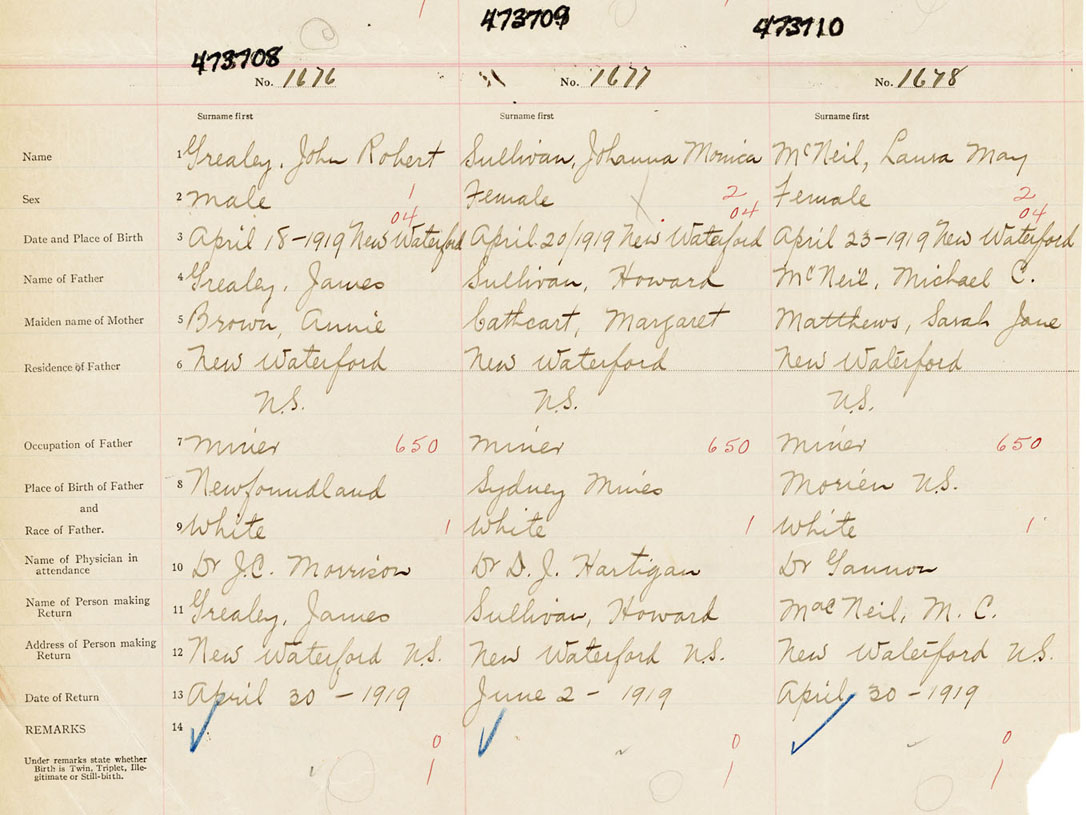 473708 473709 473710
No. 1676 No. 1677 No. 1678
Surname first Surname first Surname first
Name 1 Grealey, John Robert Sullivan, Johanna Monica McNeil, Laura May
Sex 2 Male 1 Female 2 Female 2
04 04 04
Date and Place of Birth 3 April 18-1919 New Waterford April 20/1919 New Waterford April 23-1919 New Waterford
Name of Father 4 Grealey, James Sullivan, Howard McNeil, Michael C.
Maiden name of Mother 5 Brown, Annie Cathcart, Margaret Matthews, Sarah Jane
Residence of Father 6 New Waterford New Waterford New Waterford
N.S. N.S. N.S.
Occupation of Father 7 Miner 650 Miner 650 Miner 650
Place of Birth of Father 8 Newfoundland Sydney Mines Morien N.S.
and
Race of Father. 9 White 1 White 1 White 1
Name of Physician in
attendance 10 Dr J.C. Morrison Dr D.J. Hartigan Dr Gannon
Name of Person making
Return 11 Grealey, James Sullivan, Howard MacNeil, M. C.
Address of Person making
Return 12 New Waterford N.S. New Waterford N.S. New Waterford N.S.
Date of Return 13 April 30 - 1919 June 2 - 1919 April 30 - 1919
REMARKS 14
0 0 0
Under remarks state whether
Birth is Twin, Triplet, Ille-
gitimate or Still-birth.
1 1 1